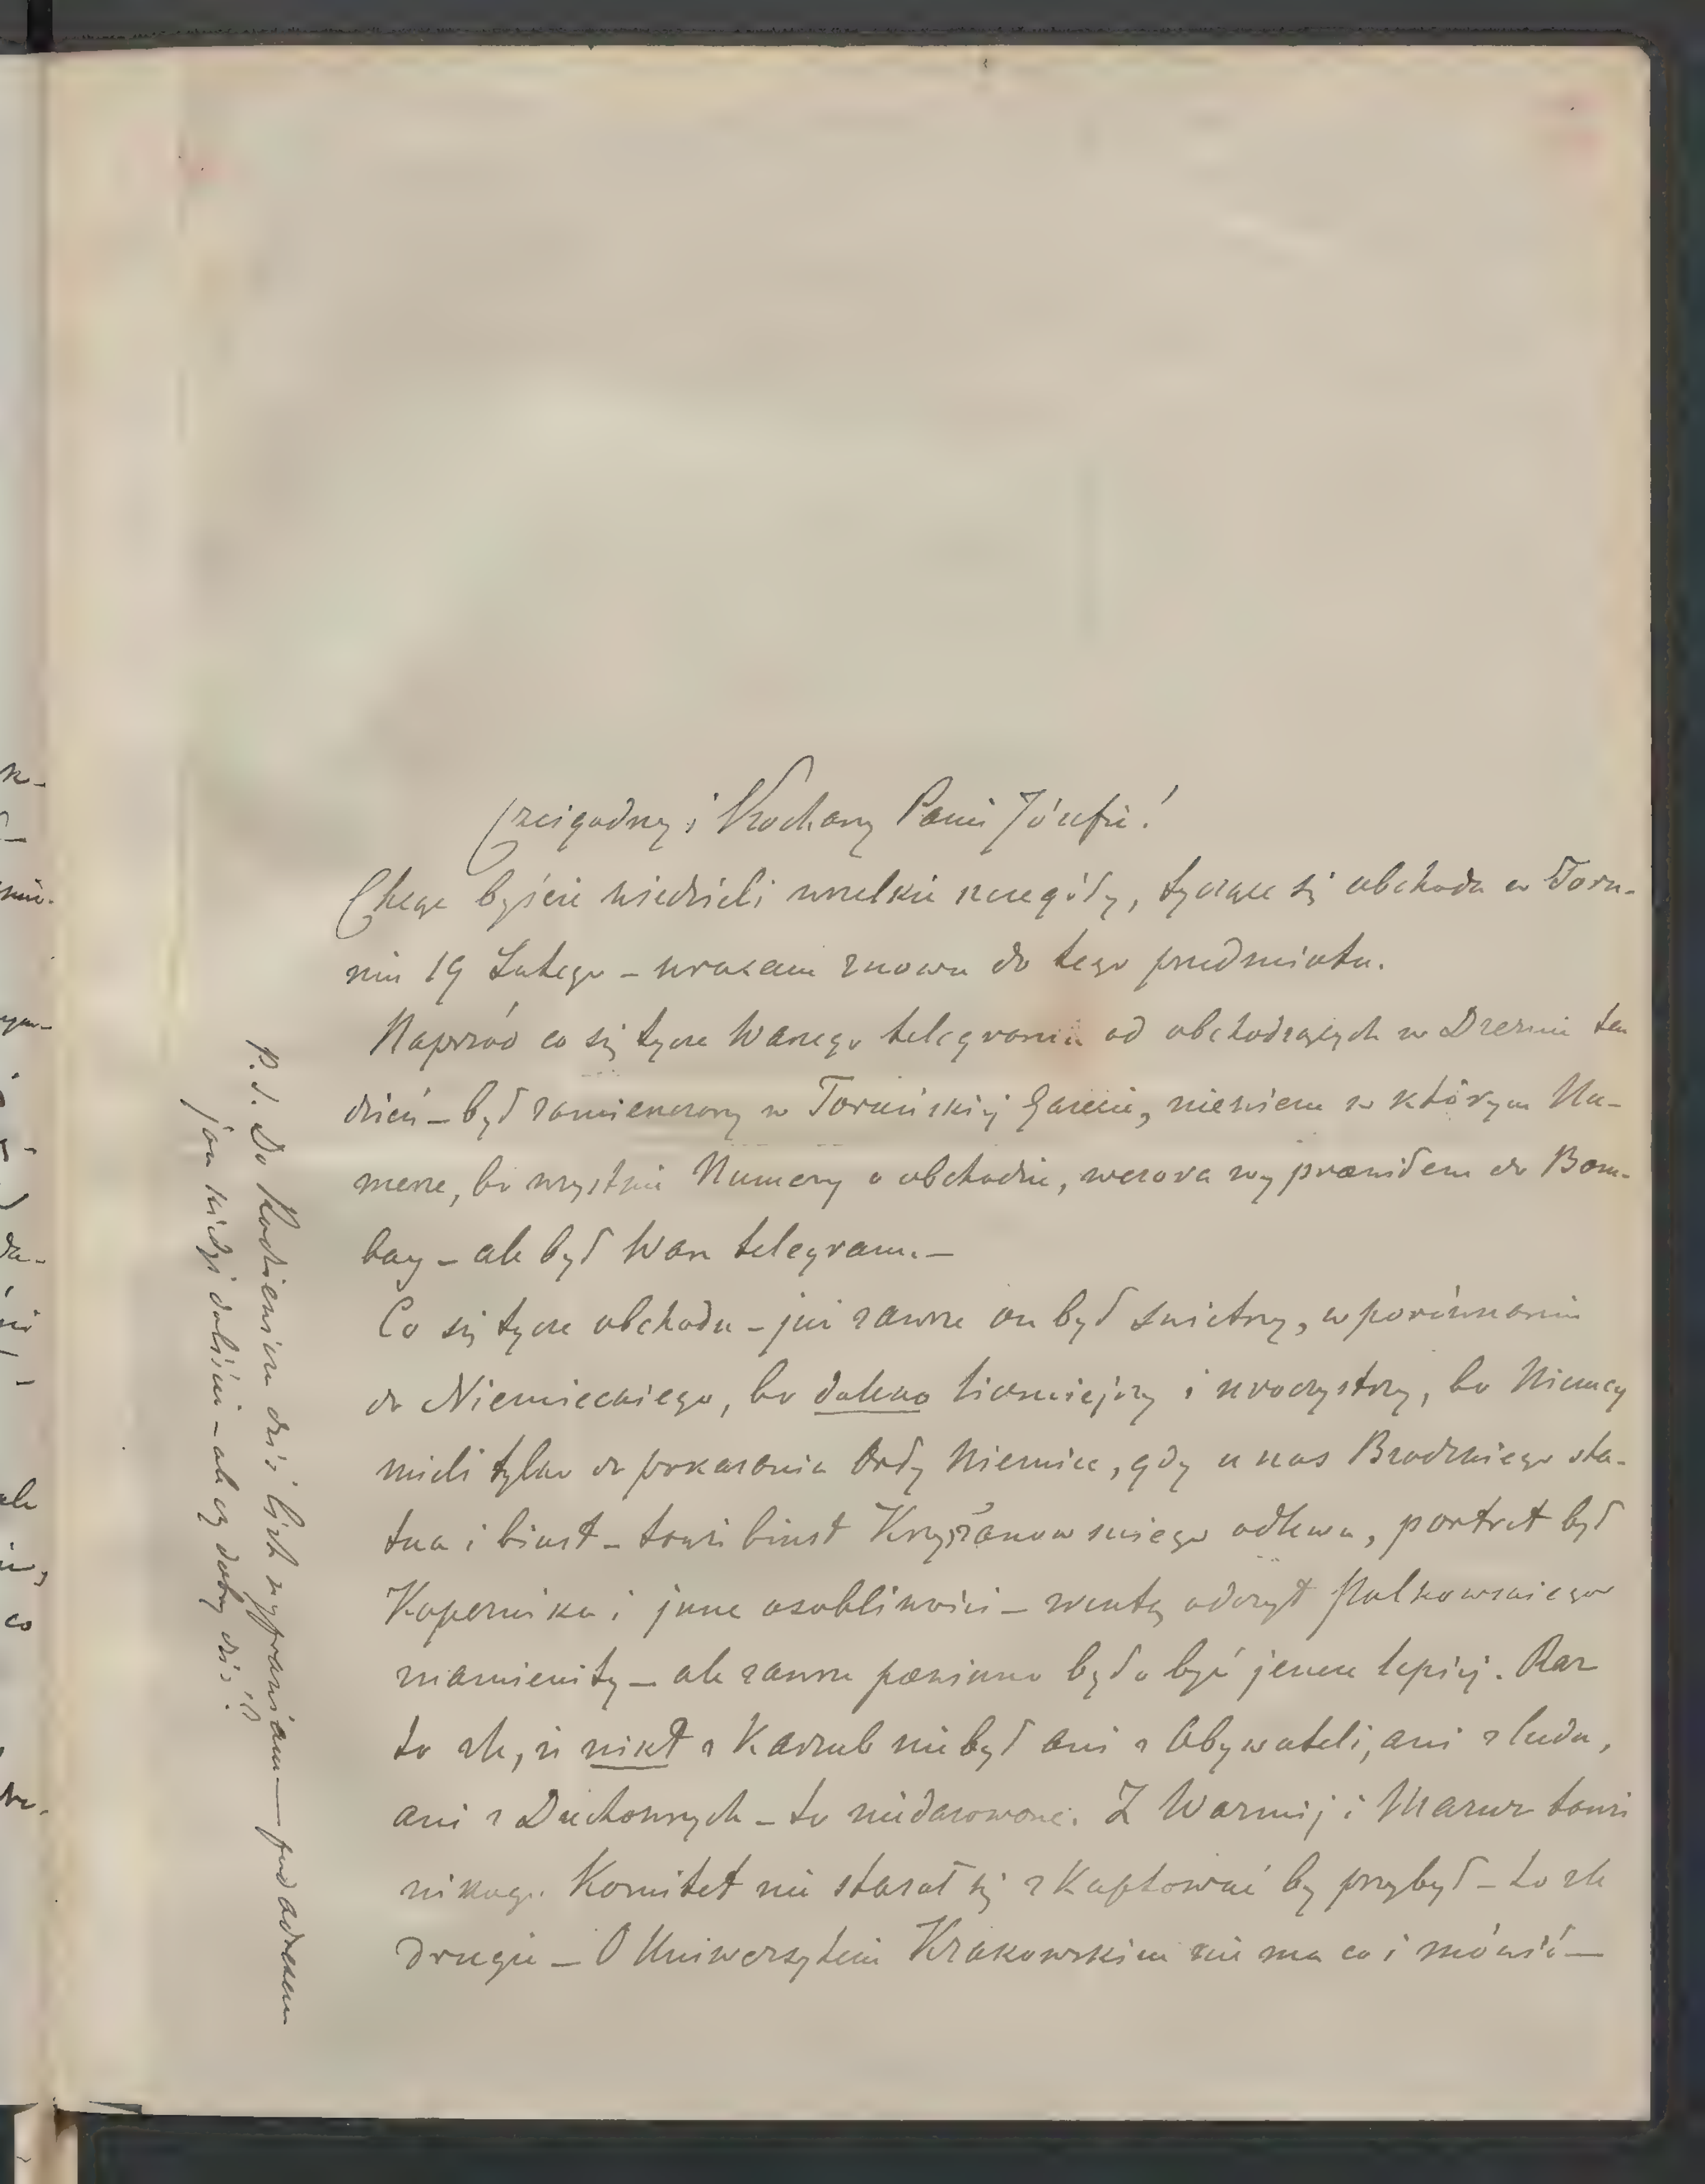 Czcigodny i Kochany Panie Józefie!
Chcąc byście wiedzieli wszelkie szczegóły, tyczące się obchodu w Toru-
niu 19 Lutego – wracam znowu do tego przedmiotu.
Naprzód co się tycze Waszego telegramu od obchodzących w Dreznie ten
dzień – był zamieszczony w Toruńskiej Gazecie, niewiem w którym Nu-
merze, bo wszystkie Numery o obchodzie, wczora wyprawiłem do Bom-
bay – ale był Wasz telegram. –
Co się tycze obchodu – już zawsze on był świetny, w porównaniu
do Niemieckiego, bo daleko liczniejszy i uroczystszy, bo Niemcy
mieli tylko do pokazania Ordy Niemice, gdy u nas Brodzkiego sta-
tua i biust – toż i biust Kryżanowskiego odlewu, portret był
Kopernika i jnne osobliwości – zresztą odczyt Polkowskiego
znamienity – ale zawsze powinno było być jeszcze lepiej. Raz
to złe, iż nikt z Kaszub nie był ani z Obywateli, ani z ludu,
ani z Duchownych – to niedarowane. Z Warmij i Mazur toż i
nikogo. Komitet nie starał się skaptować by przybył – to złe
drugie – O Uniwersytecie Krakowskim nie ma co i mówić –
P. S. Do Rodziewicza dziś list wyprawiam – pod adresem
jak kiedyś daliście – ale czy dobry dziś?